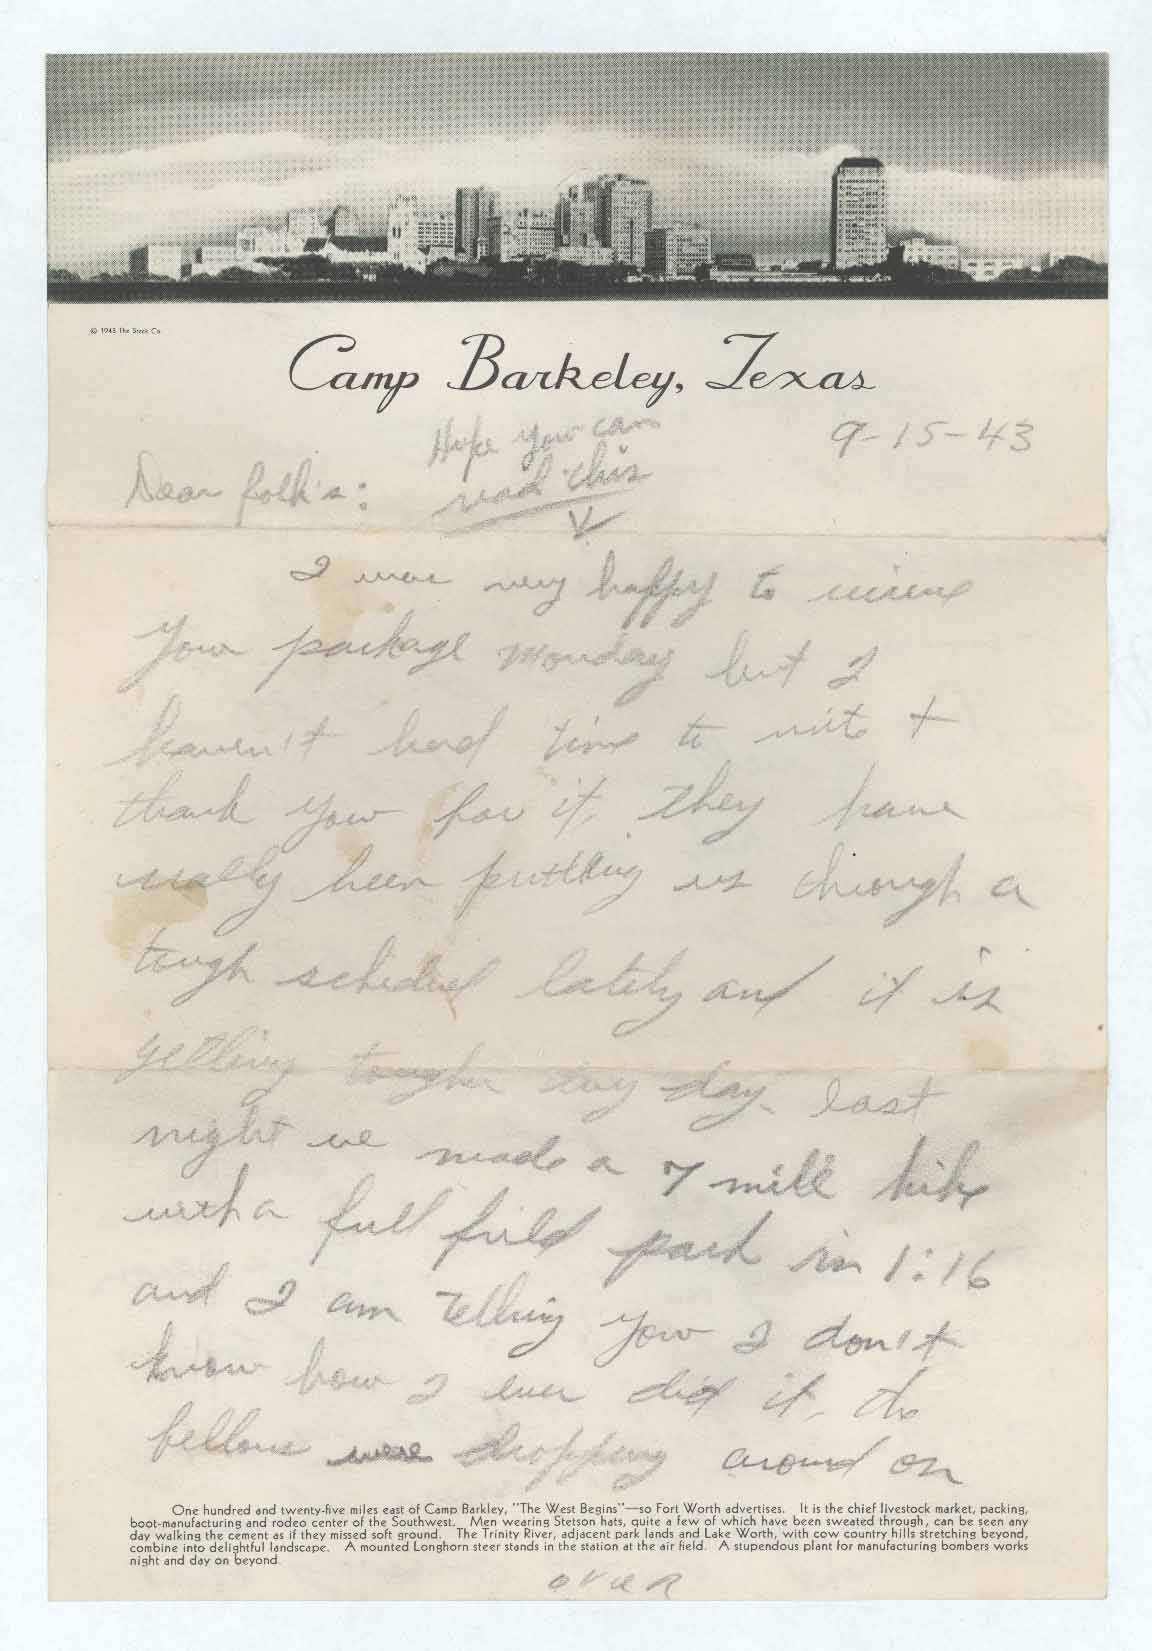 © 1943 The Steck Co.
Camp Barkeley, Texas
9-15-43
Hope you can
read this
Dear folk's:
I was very happy to recieve
Your package Monday but I
haven't had time to write +
thank you for it, They have
really been putting us through a
tough schedual lately and it is
getting tougher every day. last
night we made a 7 mile hike
with a full field pack in 1:16
and I am telling you I don't
know how I ever did it, the
fellows were dropping around on
One hundred and twenty-five miles east of Camp Barkley, "The West Begins"—so Fort Worth advertises. It is the chief livestock market, packing,
boot-manufacturing and rodeo center of the Southwest. Men wearing Stetson hats, quite a few of which have been sweated through, can be seen any
day walking the cement as if they missed soft ground. The Trinity River, adjacent park lands and Lake Worth, with cow country hills stretching beyond,
combine into delightful landscape. A mounted Longhorn steer stands in the station at the air field. A stupendous plant for manufacturing bombers works
night and day on beyond.
OVER